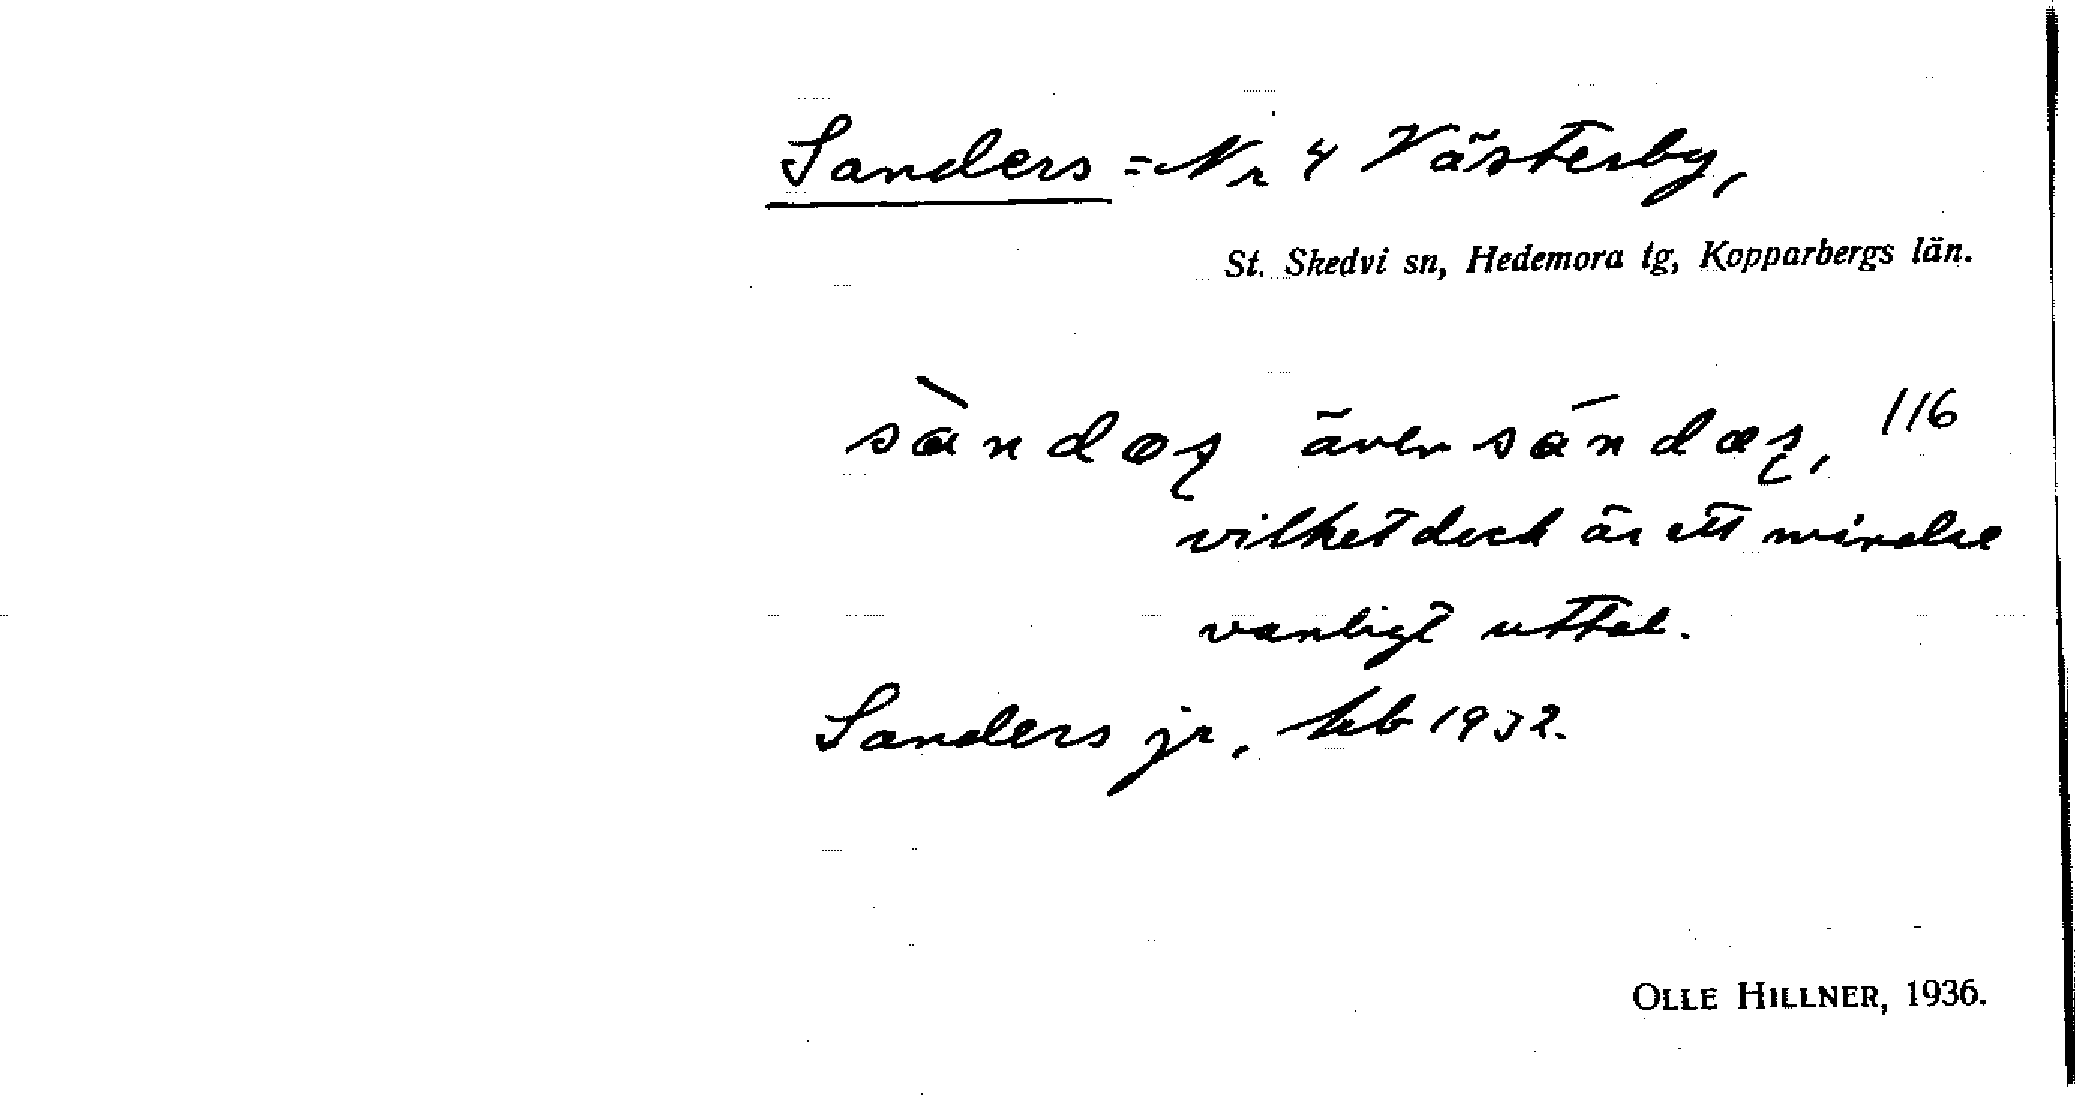 Sanders = Nr 4 Västerby,
St. Skedvi sn, Hedemora tg, Kopparbergs län.
sàndæʂ även sándæʂ, 116
vilket dock är ett mindre
vanligt uttal.
Sanders jr, kb 1932.
OLLE HILLNER, 1936.